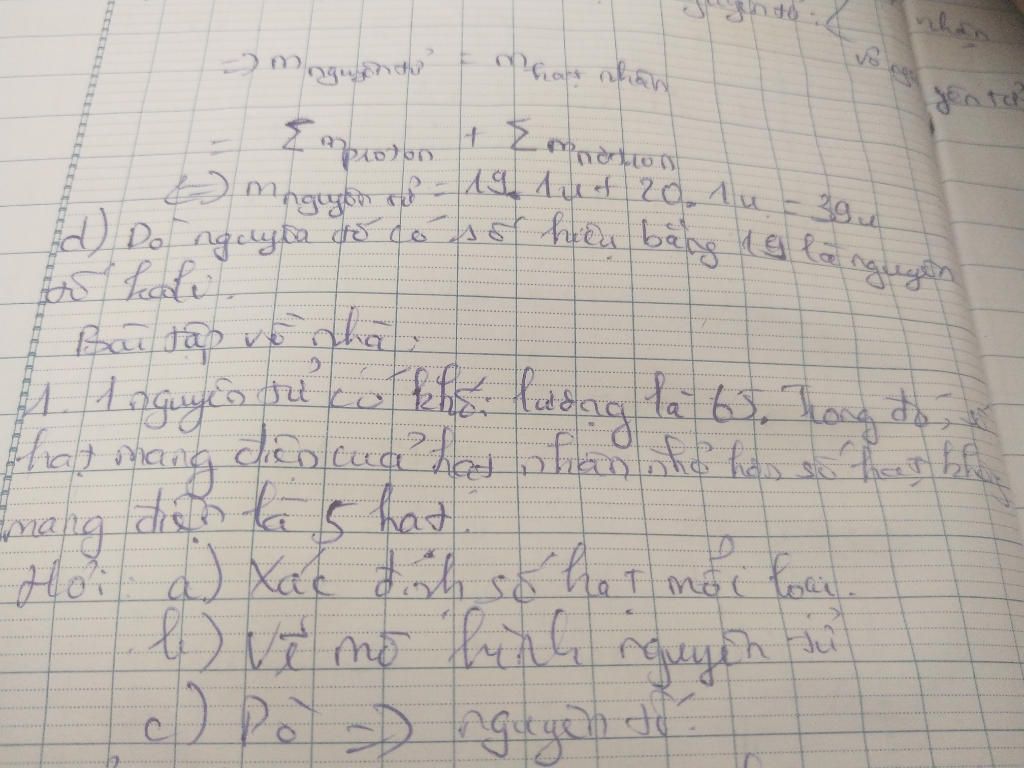 nhân
=> m nguyên tử = m hạt nhân
vỏ
= Σ m proton + Σ m nơtron
<=> m nguyên tử = 19. 1u + 20. 1u = 39u
d) Dò nguyên tố có số hiệu bằng 19 là nguyên
tố kali.
Bài tập về nhà:
1. 1 nguyên tử có khối lượng là 65. Trong đó, số
hạt mang điện của hạt nhân nhỏ hơn số hạt không
mang điện là 5 hạt.
Hỏi: a) Xác định số hạt mỗi loại.
b) Vẽ mô hình nguyên tử
c) Dò => nguyên tố.